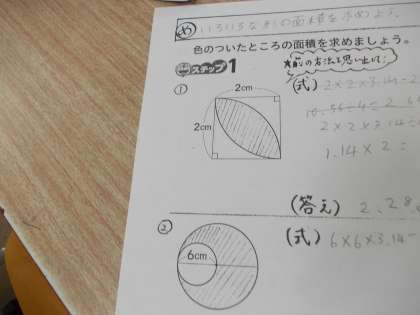 め いろいろな形の面積を求めよう。
色のついたところの面積を求めましょう。
ステップ1
★前の方法を思い出して!
① 2cm
2cm
(式) 2×2×3.14=
2×2×3.14÷
1.14×2=
(答え) 2.28
②
6cm
(式) 6×6×3.14−